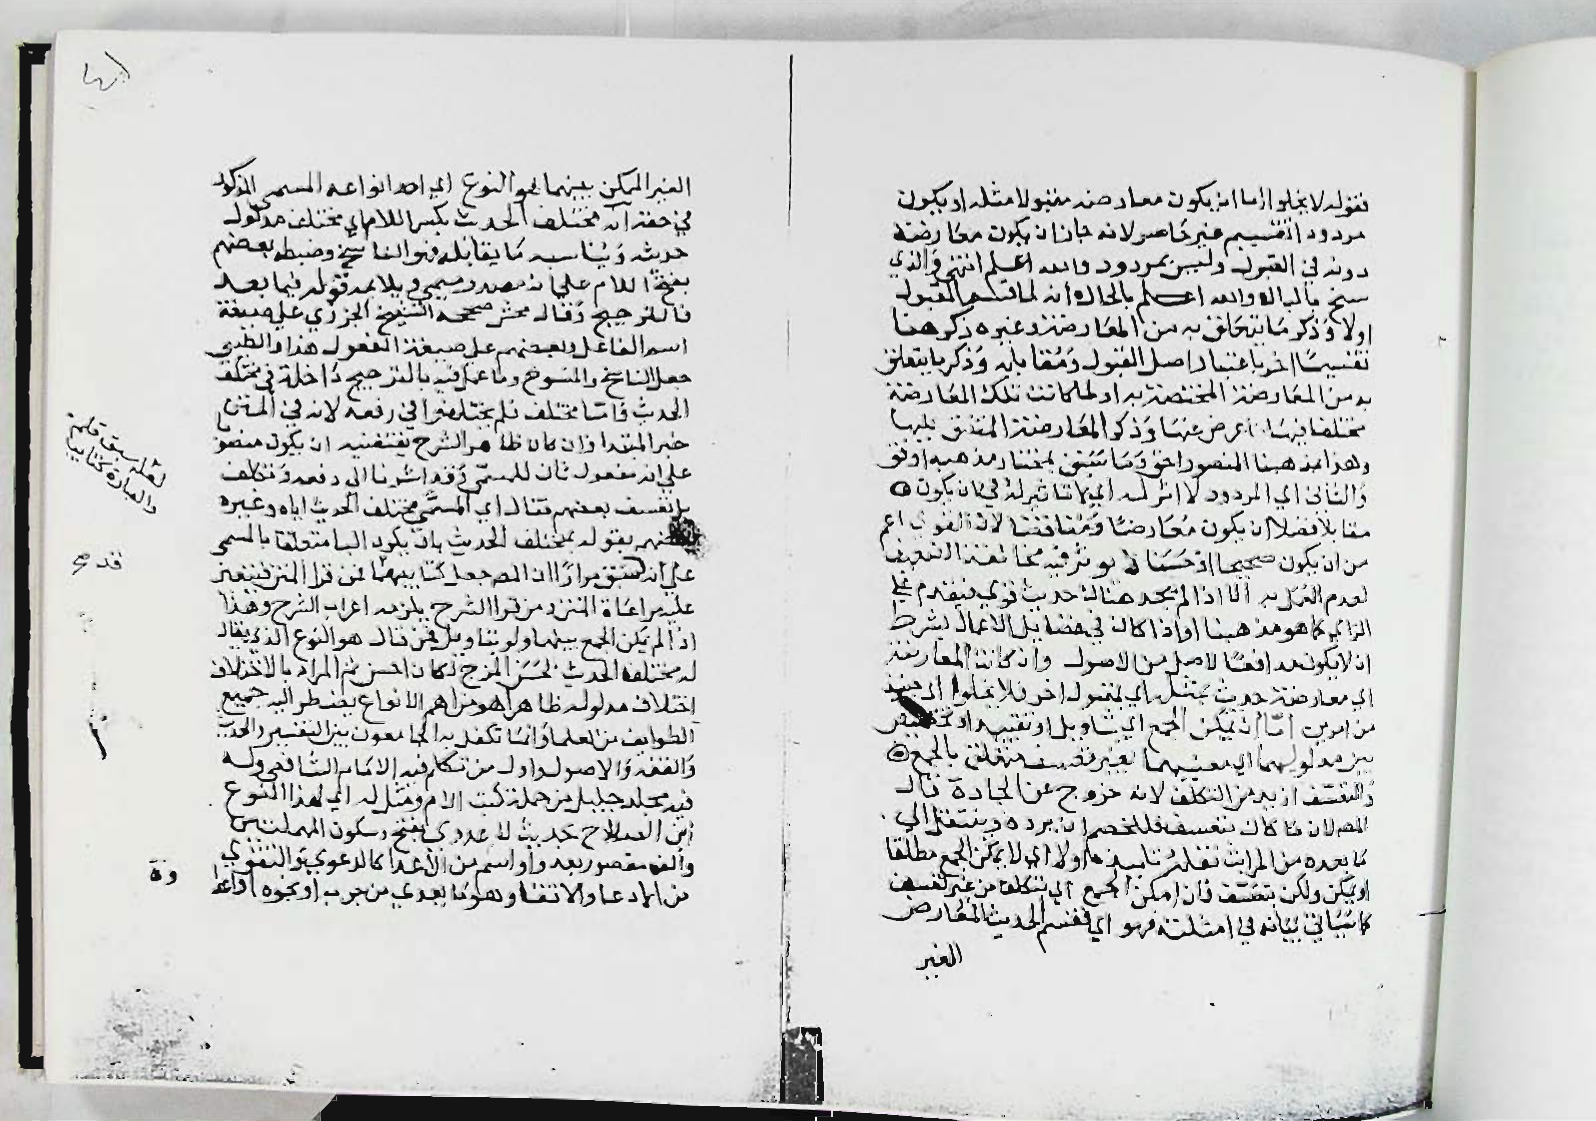 فقوله لا يخلوا اما ان يكون معارضه مقبولا مثله او يكون
مردودا تقسيم غير حاصر لانه جاز ان يكون معارضه
دونه في القبول وليس بمردود والله اعلم انتهى والذي
سنح بالبال والله اعلم بالحال انه لما قسم المقبول
اولا وذكر ما يتعلق به من المعارضة وغيره ذكر هنا
تقسيما اخر باعتبار اصل القبول ومقابله وذكر ما يتعلق
به من المعارضة المختصة به او لما كانت تلك المعارضة
مختلفا فيها اعرض عنها وذكر المعارضة المتفق عليها
وهذا بمذهبنا المنصور احق وما سبق بمختار مذهبه اوفق
والثاني اي المردود لا اثر له اي لا تاثير له في ان يكون
مقابلا فضلا ان يكون معارضا ومناقضا لان القوي اعم
من ان يكون صحيحا او حسنا لا يوثر فيه مخالفة الضعيف
لعدم العمل به الا اذا لم يجد هناك حديث قوي فيقدم على
الراي كما هو مذهبنا او اذا كان في فضايل الاعمال بشرط
ان لا يكون مدافعا لاصل من الاصول وان كانت المعارضة
اي معارضة حديث بمثله اي لمقبول اخر فلا يخلوا اي حينئذ
من امرين اما ان يمكن الجمع اي بتاويل او تقييد او تخصيص
بين مدلوليهما اي معنييهما بغير تعسف متعلق بالجمع
والتعسف ازيد من التكلف لانه خروج عن الجادة قال
المص لان ما كان بتعسف فللخصم ان يرده وينتقل الى
ما بعده من المراتب نقله تلميذه اولا اي لا يمكن الجمع مطلقا
او يمكن ولكن بتعسف فان امكن الجمع اي بتكلف من غير تعسف
كما سياتي بيانه في امثلته فهو اي فقسم الحديث المعارض
الغير
الغير الممكن بينهما هو النوع اي احد انواعه المسمى المذكور
في حقه انه مختلف الحديث بكسر اللام اي مختلف مدلول
حديثه ويناسبه ما يقابله فهو الناسخ وضبطه بعضهم
بفتح اللام على انه مصدر ميمي ويلايمه قوله فيما بعد
فالترجيح وقال محشي صححه الشيخ الجزري على صيغة
اسم الفاعل وبعضهم على صيغة المفعول هذا والطيبي
جعل الناسخ والمنسوخ وما عمل فيه بالترجيح داخلة في مختلف
الحديث واما مختلف فلم يختلفوا في رفعه لانه في المتن
خبر المبتدا وان كان ظاهر الشرح يقتضيه ان يكون منصوبا
على انه مفعول ثان للمسمى وقد اشرنا الى دفعه وتكلف
بل تعسف بعضهم فقال اي المسمى مختلف الحديث اياه وغيره
بعضهم بقوله بمختلف الحديث بان يكون البا متعلقا بالمسمى
على انه سبق مرارا ان المص جعل كتابيهما فمن قرا المتن فيتعين
عليه مراعاة المتن ومن قرا الشرح يلزمه اعراب الشرح وهذا
اذا لم يمكن الجمع بينهما ولو بتاويل فمن قال هو النوع الذي يقال
له مختلف الحديث لحسن المزج لكان احسن ثم المراد بالاختلاف
اختلاف مدلوله ظاهرا وهو من اهم الانواع يضطر اليه جميع
الطوايف من العلما وانما تكفل به الجامعون بين التفسير والحديث
والفقه والاصول واول من تكلم فيه الامام الشافعي وله
فيه مجلد جليل من جملة كتب الام ومثل له اي لهذا النوع
ابن الصلاح بحديث لا عدوى بفتح وسكون المهملتين
والف مقصور بعد واو اسم من الاعدا كالدعوى والتقوى
من الادعا والاتقا وهو ما يعدي من جرب او نحوه اذا
لعله سبق قلم
والعبارة كتابيه
وة